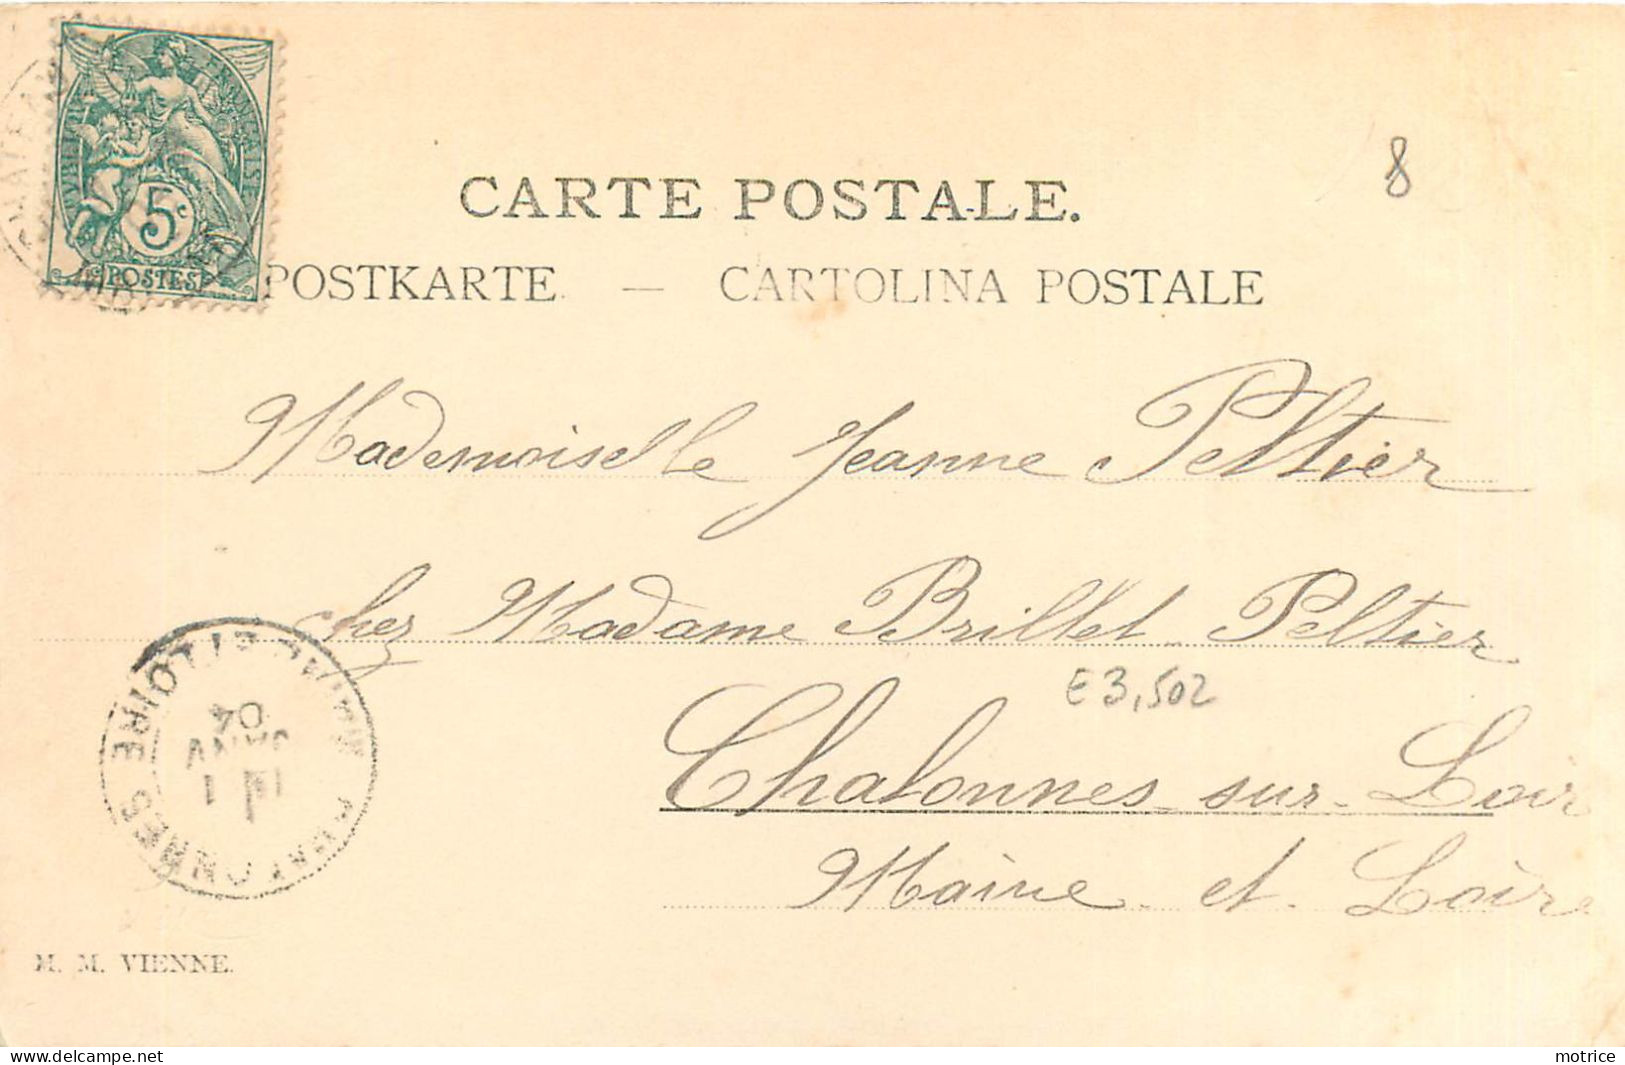 RÉPUBLIQUE FRANÇAISE
5c
POSTES
8
CARTE POSTALE.
POSTKARTE. — CARTOLINA POSTALE
Mademoiselle Jeanne Peltier
chez Madame Brillet Peltier
E 3,502
Chalonnes-sur-Loir
Maine et Loire
MAINE ET LOIRE
CHALONNES S
JANV
04
M. M. VIENNE.
motrice